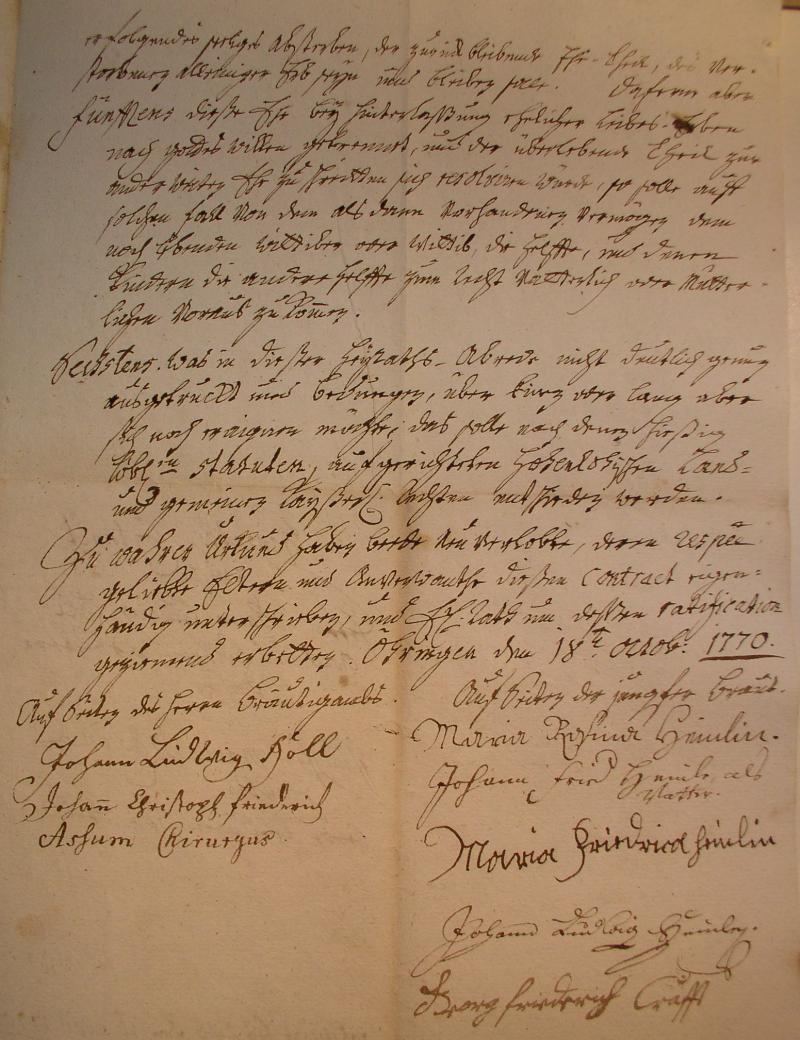 erfolgendes seeliges Absterben, der zurück bleibende Ehe-Theil, des Ver-
storbenen alleiniger Erb seyn und bleiben solle. Dafern aber
fünfftens diese Ehe bey Hinterlaßung ehelicher Leibes-Erben
nach Gottes willen getrennet, und der überlebende Theil zur
anderwärten Ehe zu schreitten sich resolviren würde, so solle auff
solchen fall von dem alsdann vorhandenen Vermögen dem
noch lebenden Wittiber oder Wittib, die Helffte, und denen
Kindern die andere Helffte zum Recht Vätterlich oder Mütter-
lichen Voraus zukommen.
Sechstens. Was in dieser Heyraths-Abrede nicht deutlich genug
ausgetruckt und bedungen, über kurz oder lang aber
sich noch eraignen möchte, das solle nach denen hiesigen
löbl.en Statuten, aufgerichteten Hohenlohischen Land-
und gemeinen Kayserl. Rechten entschieden werden.
Zu wahrer Urkund haben beede Neuverlobte, deren respve
geliebte Eltern und Anverwandte diesen Contract eigen-
händig unterschrieben, und E. E. Rath um dessen ratification
geziemend erbetten. Öhringen den 18t. Octobr: 1770.
Auf Seiten des Herrn Bräutigambs.
Johann Ludwig Holl
Johann Christoph Friederich
Assum Chirurgus
Auf Seiten der Jungfer Braut.
Maria Rosina Heinlin.
Johann Fried Heinle, als
Vatter.
Maria Friedrica Heinlin
Johann Ludwig Heinle.
Georg Friederich Crafft